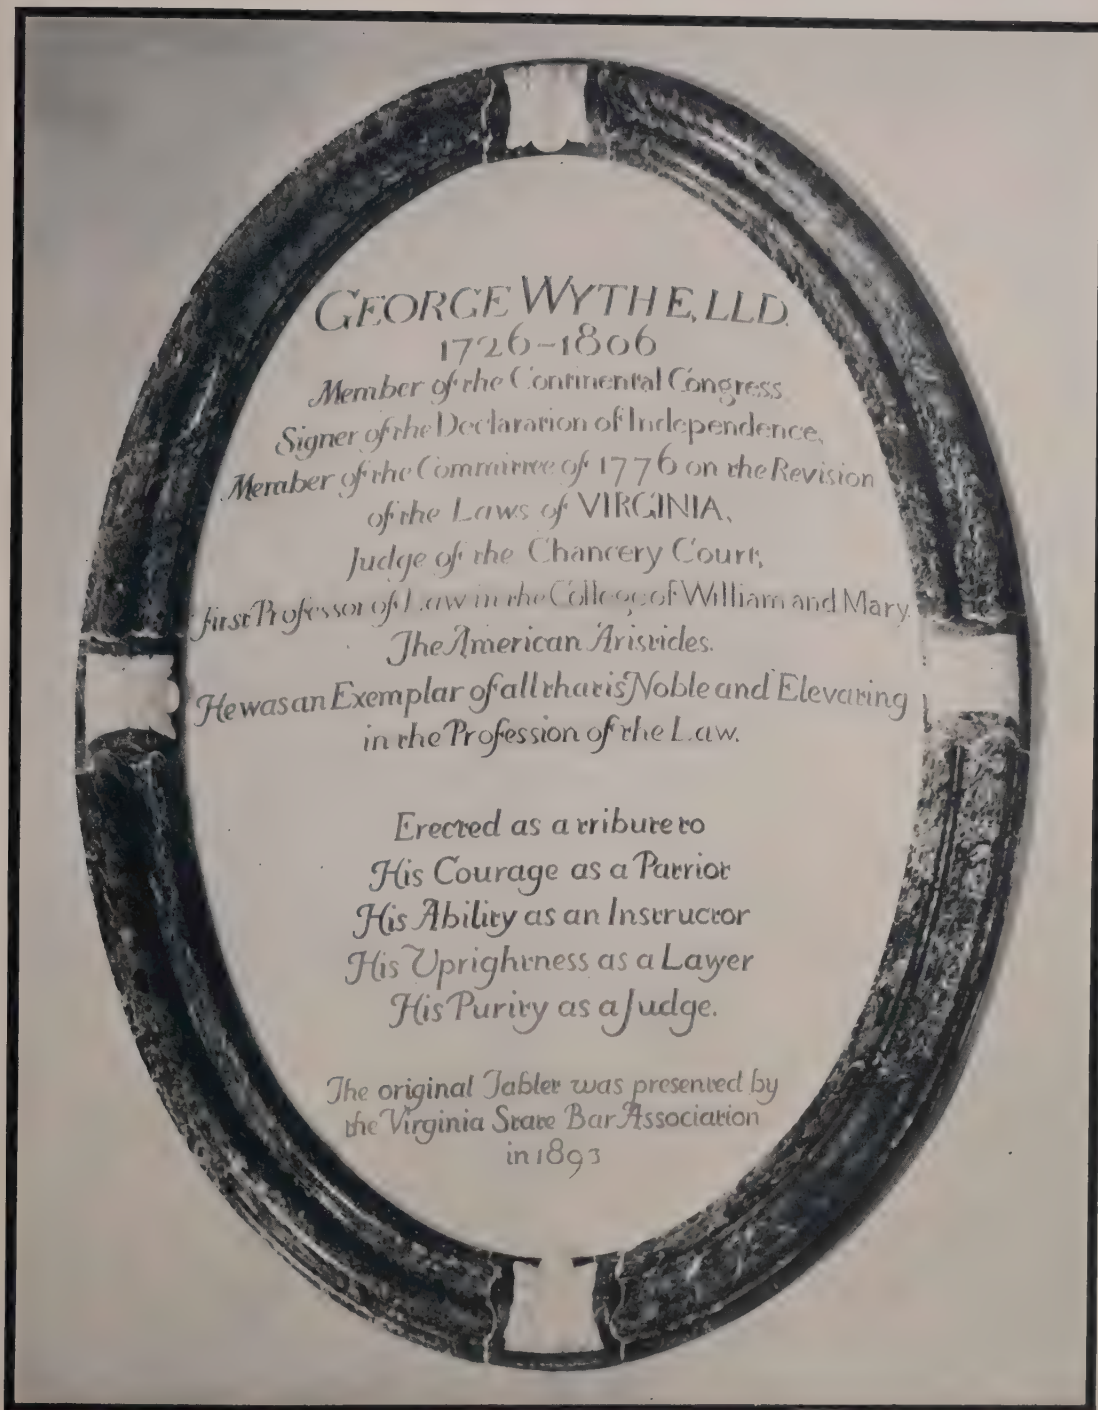 GEORGE WYTHE, LLD.
1726-1806
Member of the Continental Congress
Signer of the Declaration of Independence,
Member of the Committee of 1776 on the Revision
of the Laws of VIRGINIA,
Judge of the Chancery Court,
first Professor of Law in the College of William and Mary.
The American Aristides.
He was an Exemplar of all that is Noble and Elevating
in the Profession of the Law.
Erected as a tribute to
His Courage as a Patriot
His Ability as an Instructor
His Uprightness as a Lawyer
His Purity as a Judge.
The original Tablet was presented by
the Virginia State Bar Association
in 1893